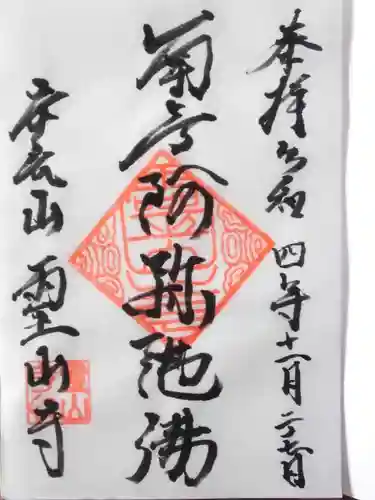 奉拝 令和四年十一月二十七日
南無阿弥陀佛
平気山 霊山寺